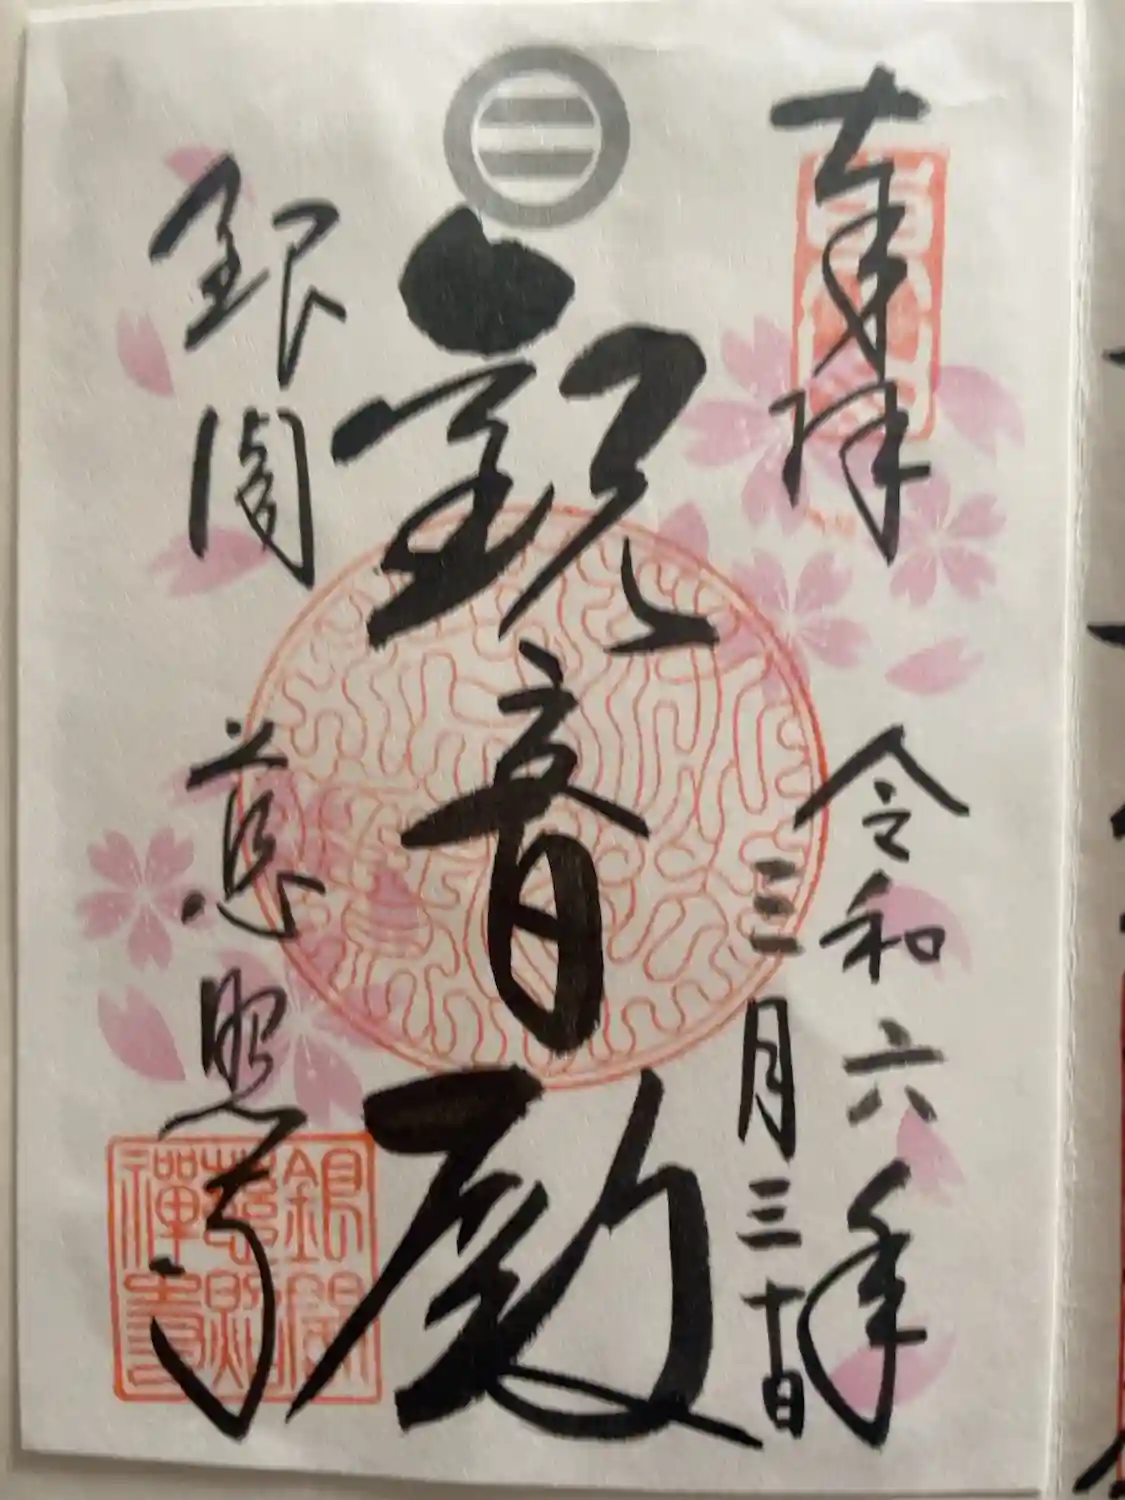 奉拝
令和六年
三月三十日
観音殿
銀閣
慈照寺
銀閣
慈照
禅寺